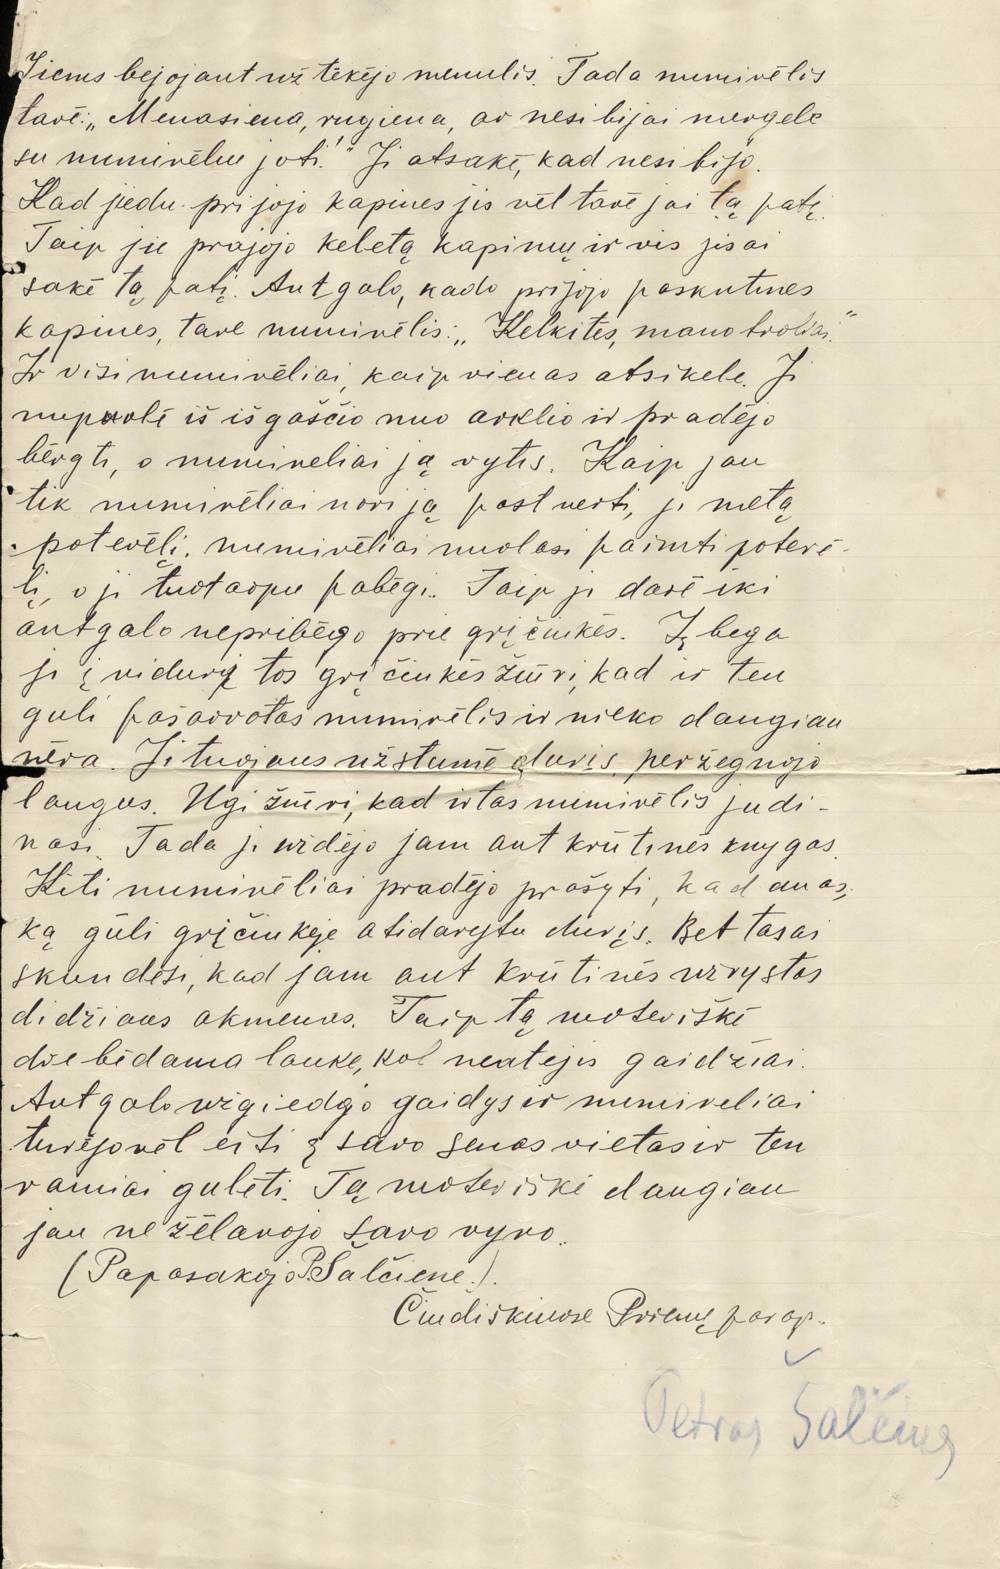 Jiems bejojant užtekėjo menulis. Tada numirėlis
tarė: „Menasiena, rugiena, ar nesibijai mergele
su numirėliu joti!" Ji atsakė, kad nesibijo.
Kad jiedu prijojo kapines jis vėl tarė jai tą patį.
Taip jie prajojo keletą kapinių ir vis jisai
sakė tą patį. Antgalo, kada prijojo paskutines
kapines, tarė numirėlis: „Kelkites, mano broliai."
Ir visi numirėliai, kaip vienas atsikelė. Ji
nupuolė iš išgaščio nuo arklio ir pradėjo
bėrgti, o numirėliai ją vytis. Kaip jau
tik numirėliai nori ją pastverti, ji metą
poterėlį, numirėliai nuolasi paimti poterė-
lį, o ji tuotarpu pabėgi. Taip ji darė iki
antgalo nepribėgo prie gričinkės. Įbega
ji į vidurį tos gričinkės žiūri, kad ir ten
guli pašarvotas numirėlis ir nieko daugiau
nėra. Ji tuojaus užstumė duris, peržegnojo
langus. Ugi žiūri, kad ir tas numirėlis judi-
nasi. Tada ji uždėjo jam ant krūtinės knygas.
Kiti numirėliai pradėjo prašyti, kad anas,
ką gūli gričinkėje atidarytu duris. Bet tasai
skundėsi, kad jam ant krūtinės užrystas
didžiaus akmenas. Taip tą moteriškė
drebėdama laukė, kol neatėjis gaidžiai.
Antgalo užgiedojo gaidys ir numirėliai
turėjo vėl eiti į savo senas vietas ir ten
ramiai gulėti. Tą moteriškė daugiau
jau nežėlavojo savo vyro.
(Papasakojo P. Šalčienė.).
Čiudiškiuose Prienų parap.
Petras Šalčius